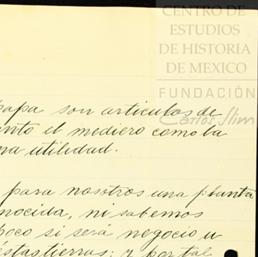 CENTRO DE
ESTUDIOS
DE HISTORIA
DE MEXICO
FUNDACIÓN
Carlos Slim
papa son articulos de
el mediero como la
utilidad.
para nosotros una planta
ni sabemos
si será negocio
tierras; y por tal